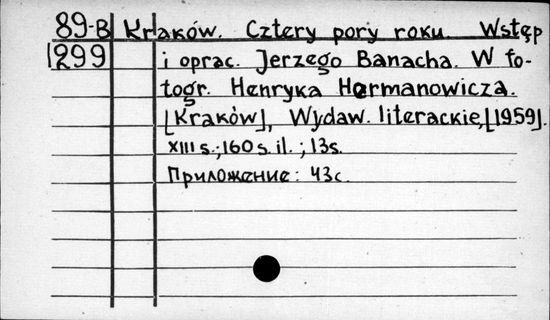 89-B Kraków. Cztery pory roku. Wstęp
1299 i oprac. Jerzego Banacha. W fo-
togr. Henryka Hermanowicza.
[Kraków], Wydaw. literackie, [1959].
XIII s.; 160 s. il.; 13 s.
Приложение: 43 с.